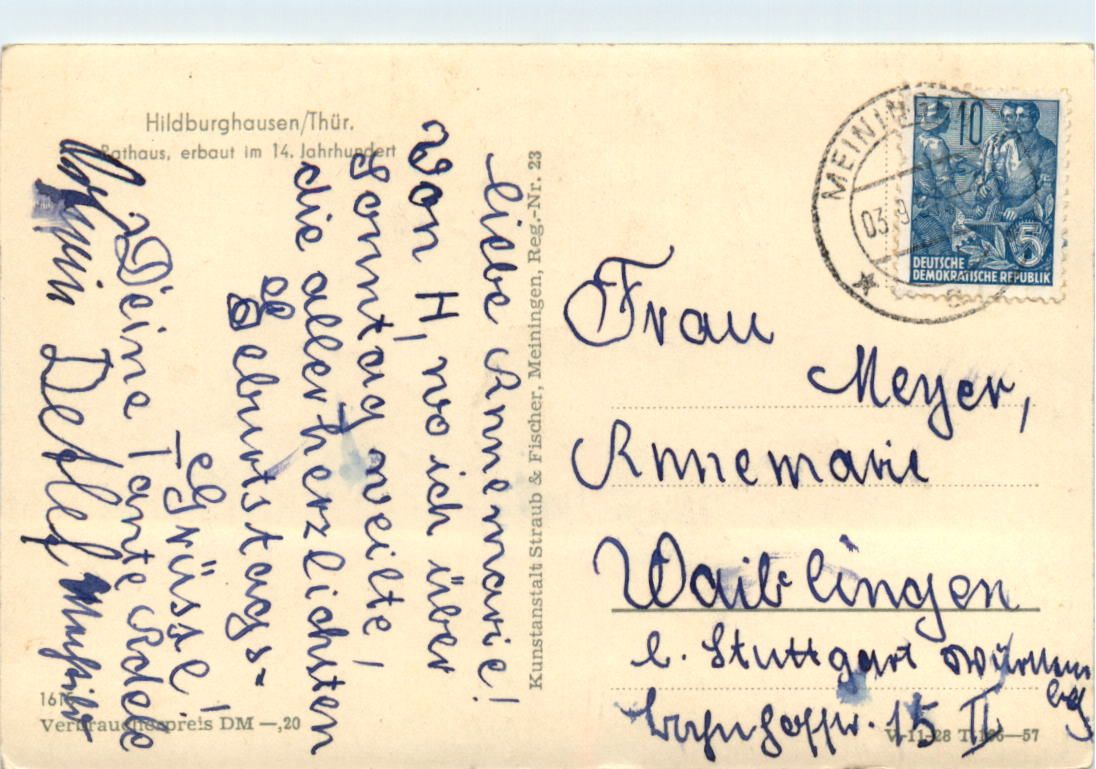 Hildburghausen/Thür.
Rathaus, erbaut im 14. Jahrhundert
Liebe Annemarie!
Von H, wo ich über
Sonntag weilte,
die allerherzlichsten
Geburtstags-
grüsse!
Deine Tante
Detlef
Kunstanstalt Straub & Fischer, Meiningen, Reg.-Nr. 23
MEININGEN
03.9
10
5
DEUTSCHE
DEMOKRATISCHE REPUBLIK
Frau
Meyer,
Annemarie
Waiblingen
b. Stuttgart Württem
bg
Bahnhofstr. 15 II
Verbraucherpreis DM —,20
V-11-28